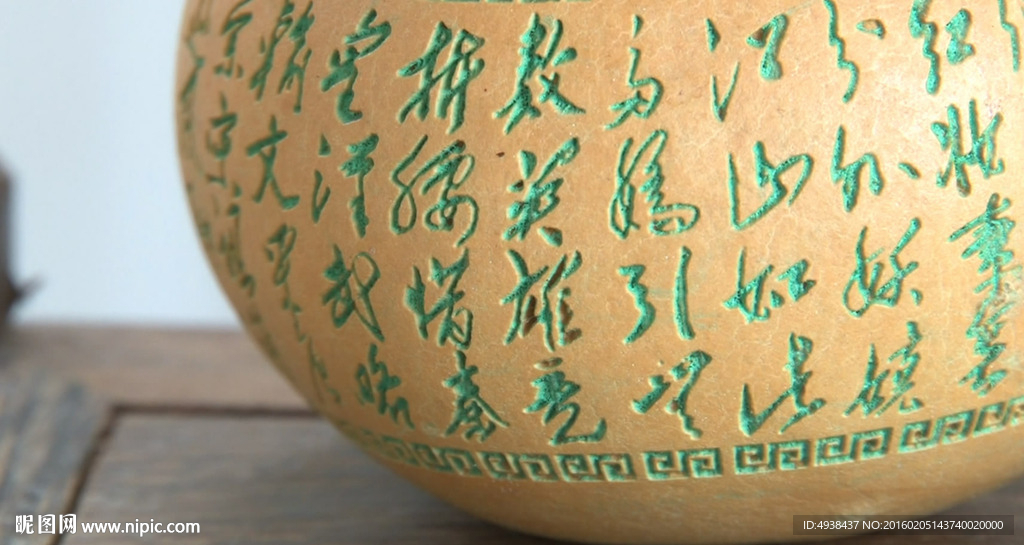 红装素裹
分外妖娆
江山如此
多娇引无
数英雄竞
折腰惜秦
皇汉武略
输文采
宗宋祖
昵图网 www.nipic.com
ID:4938437 NO:20160205143740020000